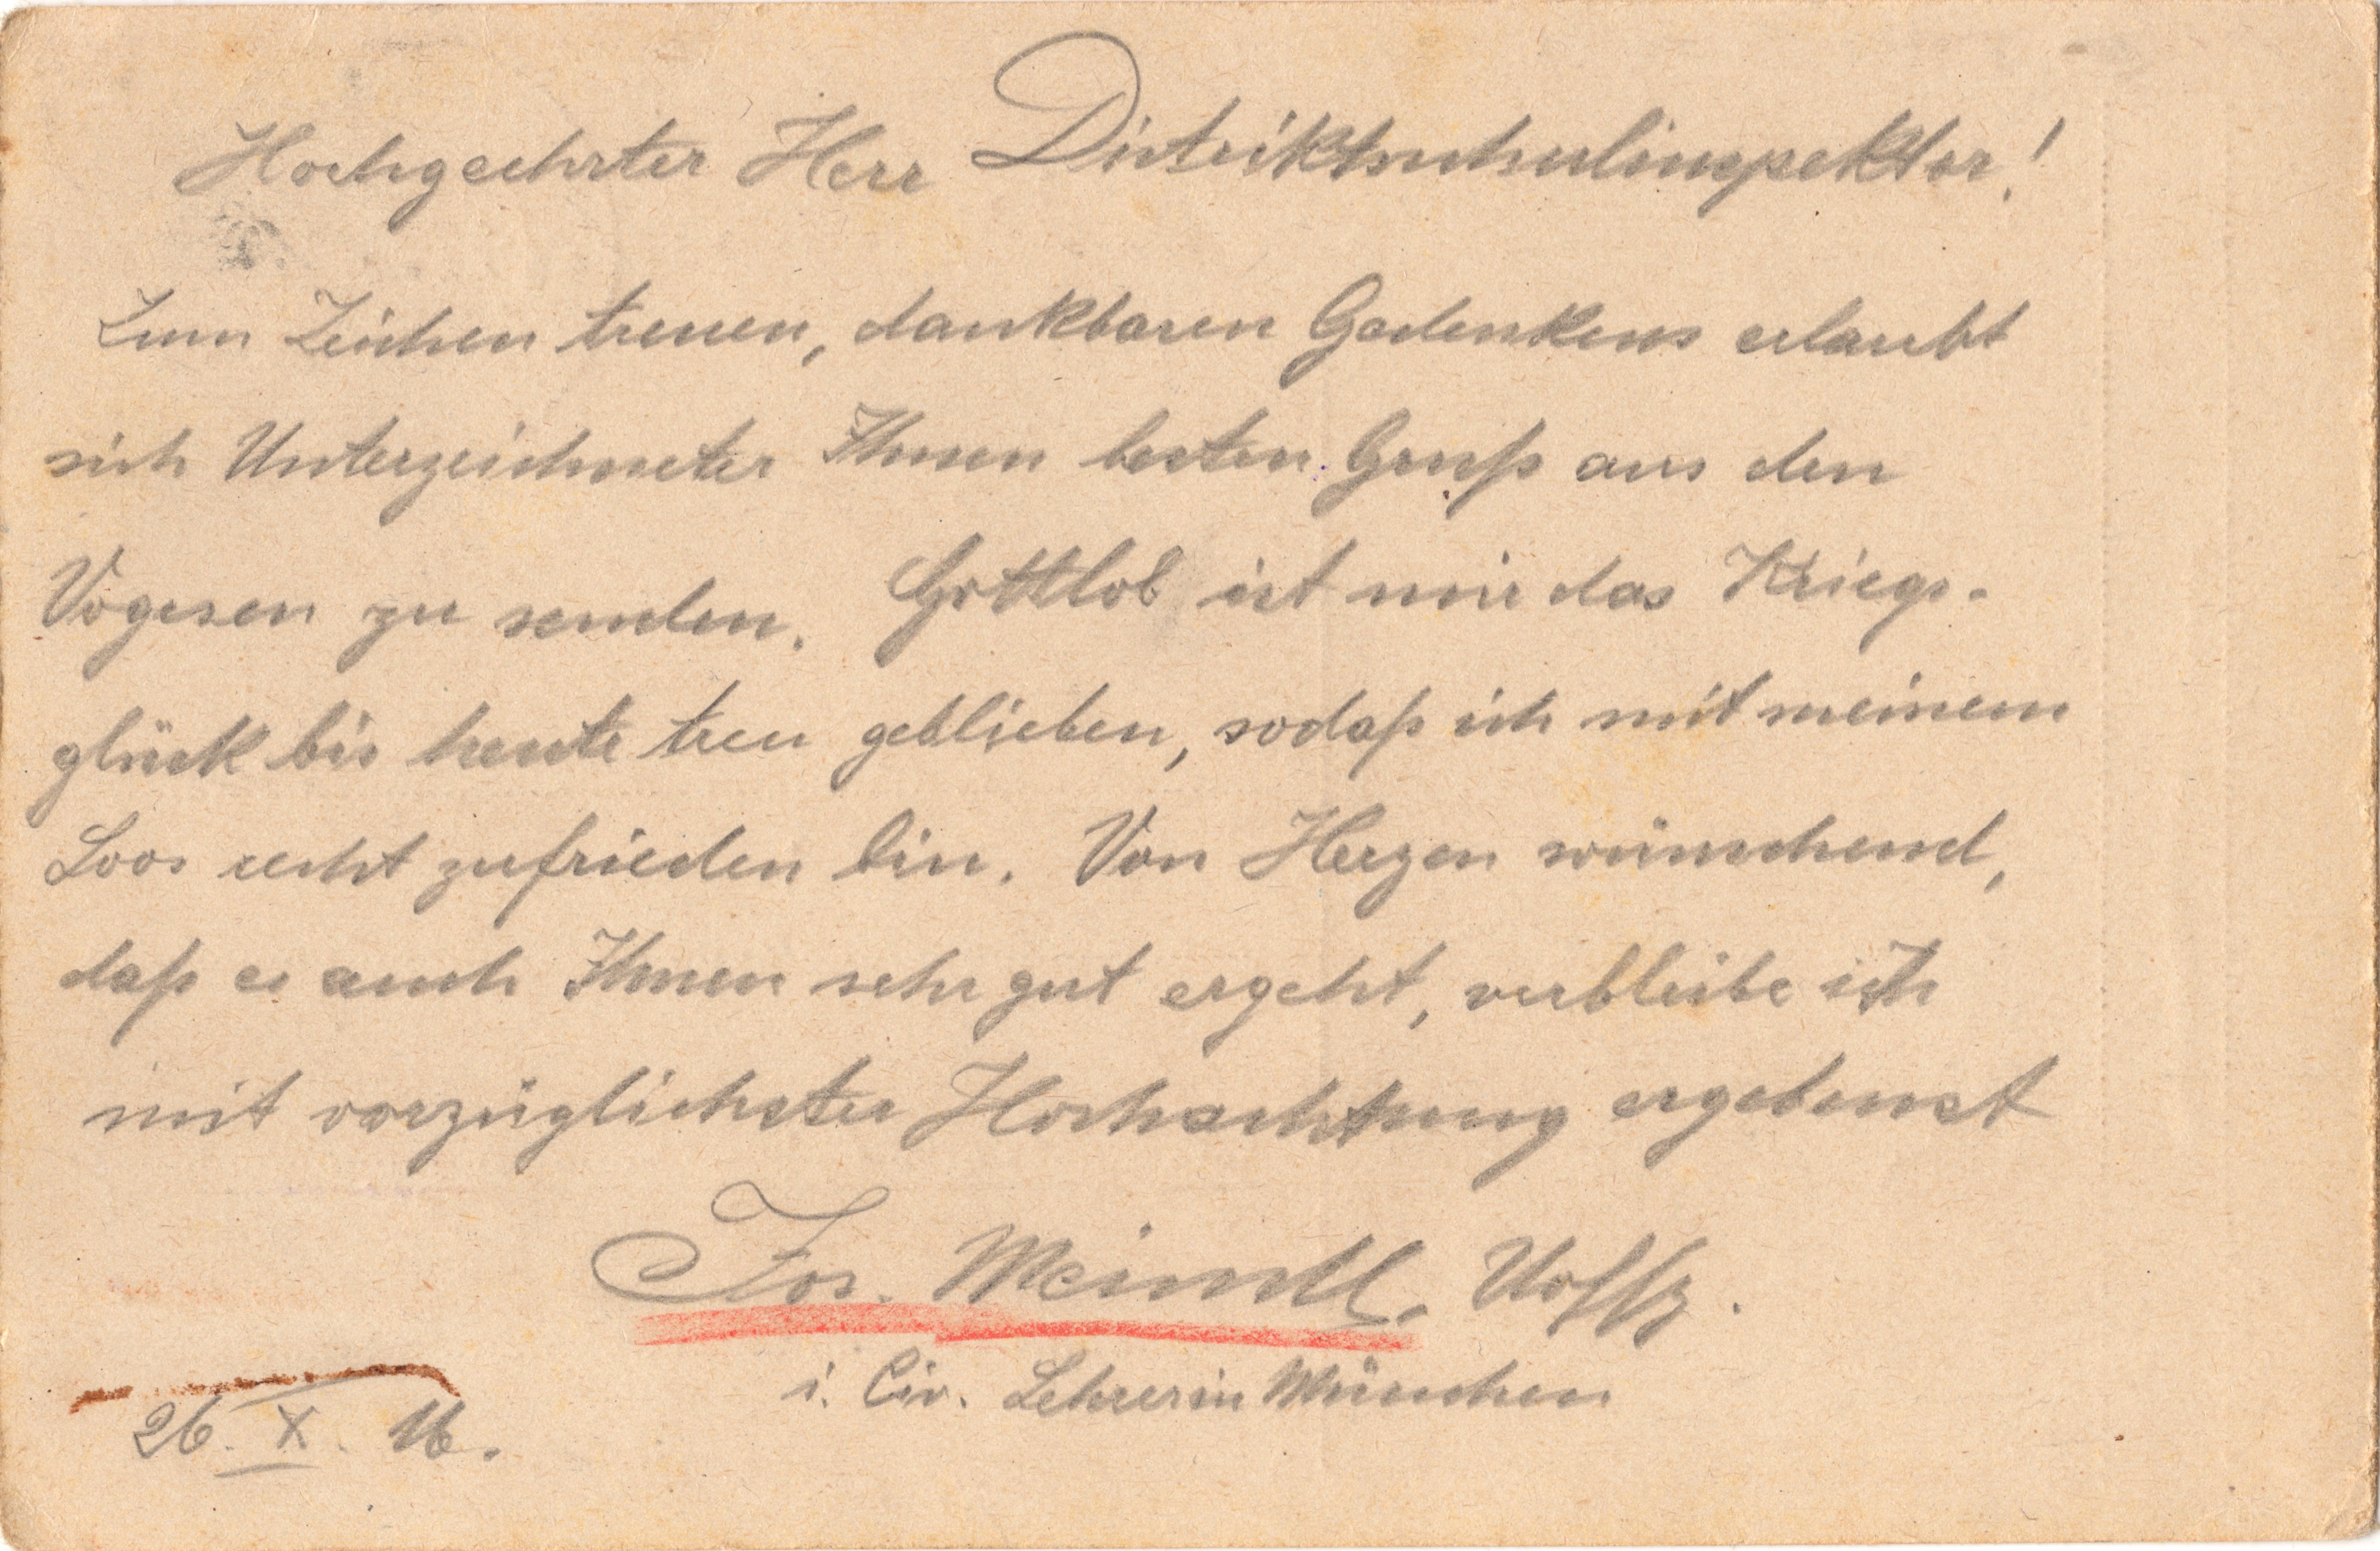 Hochgeehrter Herr Distriktsschulinspektor!
Zum Zeichen treuen, dankbaren Gedenkens erlaubt
sich Unterzeichneter Ihnen besten Gruß aus den
Vogesen zu senden. Gottlob ist mir das Kriegs-
glück bis heute treu geblieben, sodaß ich mit meinem
Loos recht zufrieden bin. Von Herzen wünschend,
daß es auch Ihnen sehr gut ergeht, verbleibe ich
mit vorzüglichster Hochachtung ergebenst
Jos. Meindl, Uoffz.
i. Civ. Lehrer in München
26. X. 16.